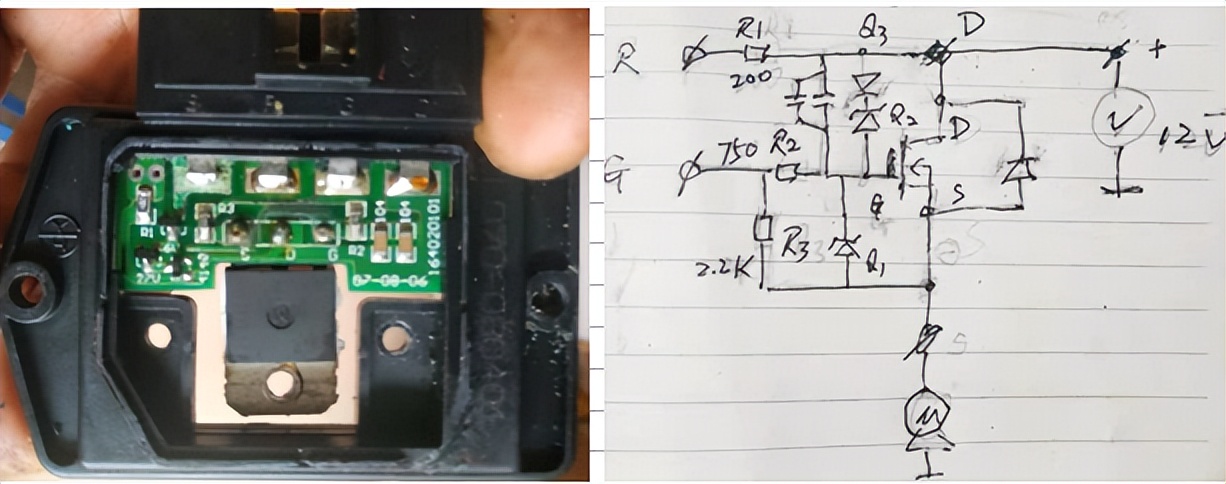 R3
R1
R2
104
104
S
D
G
27V
07-08-06
164020101
R1
Q3
D
R
200
+
Q2
D
V
12V
750
R2
G
G
S
R3
2.2K
Q1
S
M